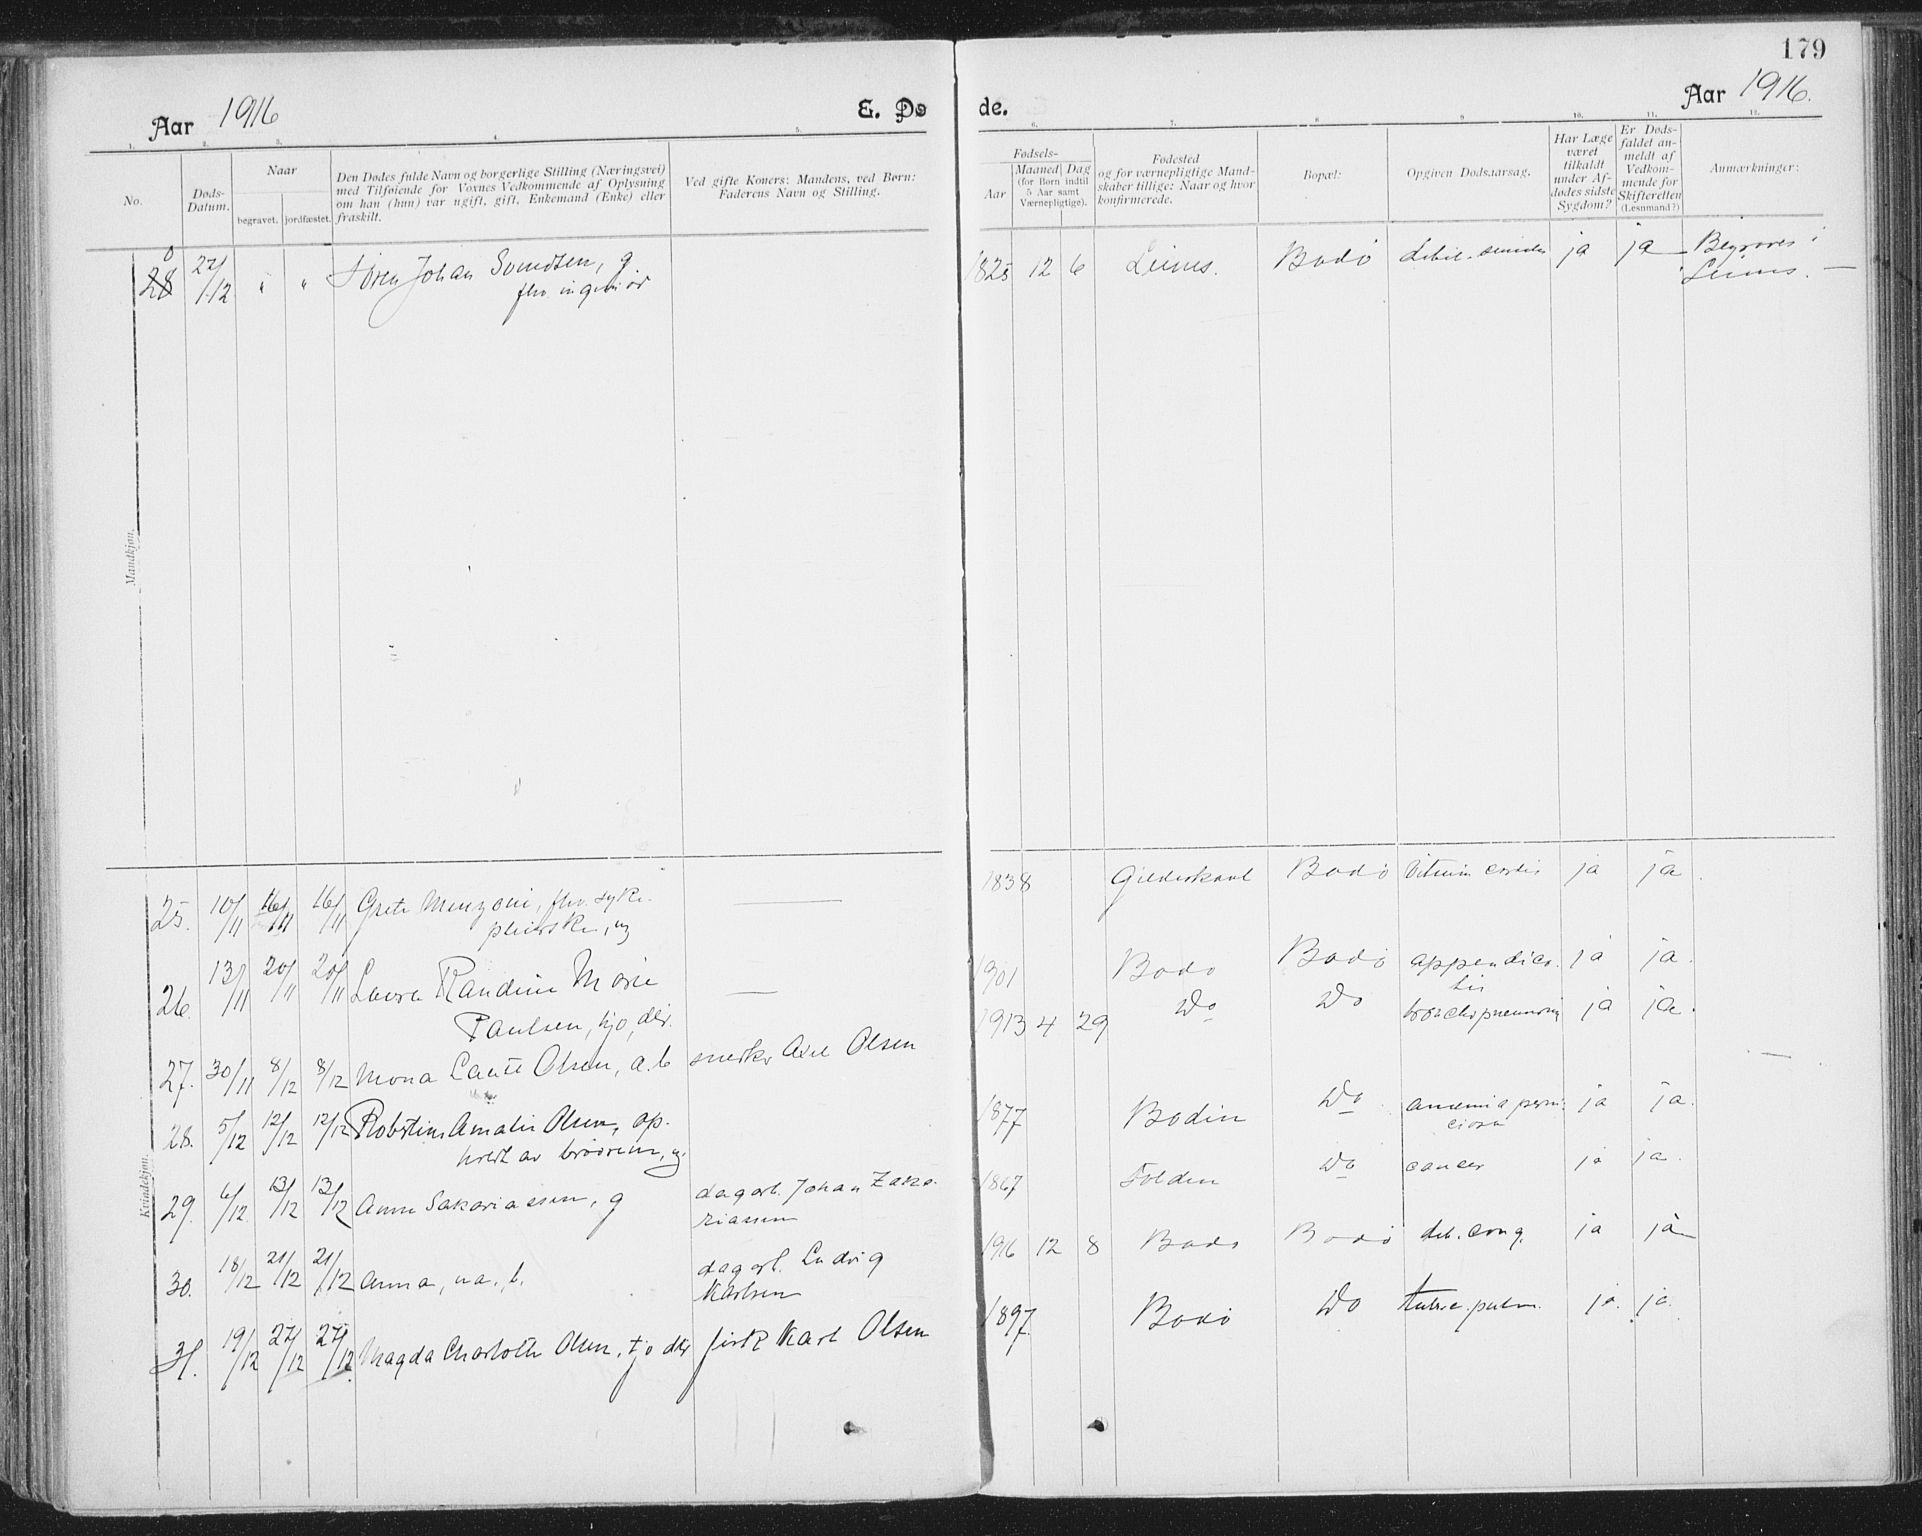 179
Aar 1916
E. Dø
de.
Aar 1916.
1. 2. 3. 4. 5. 6. 7. 8 9 10. 11. 12.
No.
Døds-
Datum.
Naar
begravet. jordfæstet.
Den Dødes fulde Navn og borgerlige Stilling (Næringsvei)
med Tilføiende for Voxnes Vedkommende af Oplysning
om han (hun) var ugift, gift, Enkemand (Enke) eller
fraskilt.
Ved gifte Koner: Mandens, ved Børn:
Faderens Navn og Stilling.
Fødsels-
Aar
Maaned Dag
(for Børn indtil
5 Aar samt
Værnepligtige).
Fødested
og for værnepligtige Mand-
skaber tillige: Naar og hvor
konfirmerede.
Bopæl:
Opgiven Dødsaarsag.
Har Læge
været
tilkaldt
under Af-
dødes sidste
Sygdom?
Er Døds-
faldet an-
meldt af
Vedkom-
mende for
Skifteretten
(Lensmand?)
Anmærkninger:
Mandkjøn.
0
28 27/12 " " Søren Johan Svendsen, g 1825 12 6 Bodø debil. senilis ja ja Begraves i
fhv. ingeniør
Kvindekjøn.
25. 10/11 16/11 16/11 Grete fhv. syke- 1838 Gildeskaal Bodø Vitium cordis ja ja.
pleierske, ug
26. 13/11 20/11 20/11 Laura Randine Marie 1901 Bodø Bodø appendici- ja ja.
tis
Paulsen, hjv. dtr.
27. 30/11 8/12 8/12 Mona Olsen, a. b snekker Axel Olsen 1913 4 29 Do Do bronchopneumoni ja ja.
28. 5/12 12/12 12/12 Amalie Olsen, op- 1877 Bodin Do anæmia perni- ja ja.
ciosa
holdt av brødrene, ug.
29. 6/12 13/12 13/12 Anna Sakariassen, g dagarb. Johan Zaka- 1867 Folden Do cancer ja ja.
riassen
30. 18/12 21/12 21/12 Anna, ua, b. dagarb. Ludvig 1916 12 8 Bodø Bodø deb. cong. ja ja
Karlsen
31. 19/12 27/12 27/12 Magda Charlotte Olsen, tj. dtr fisk Karl Olsen 1897 Bodø Do tuberc. pulm. ja. ja.